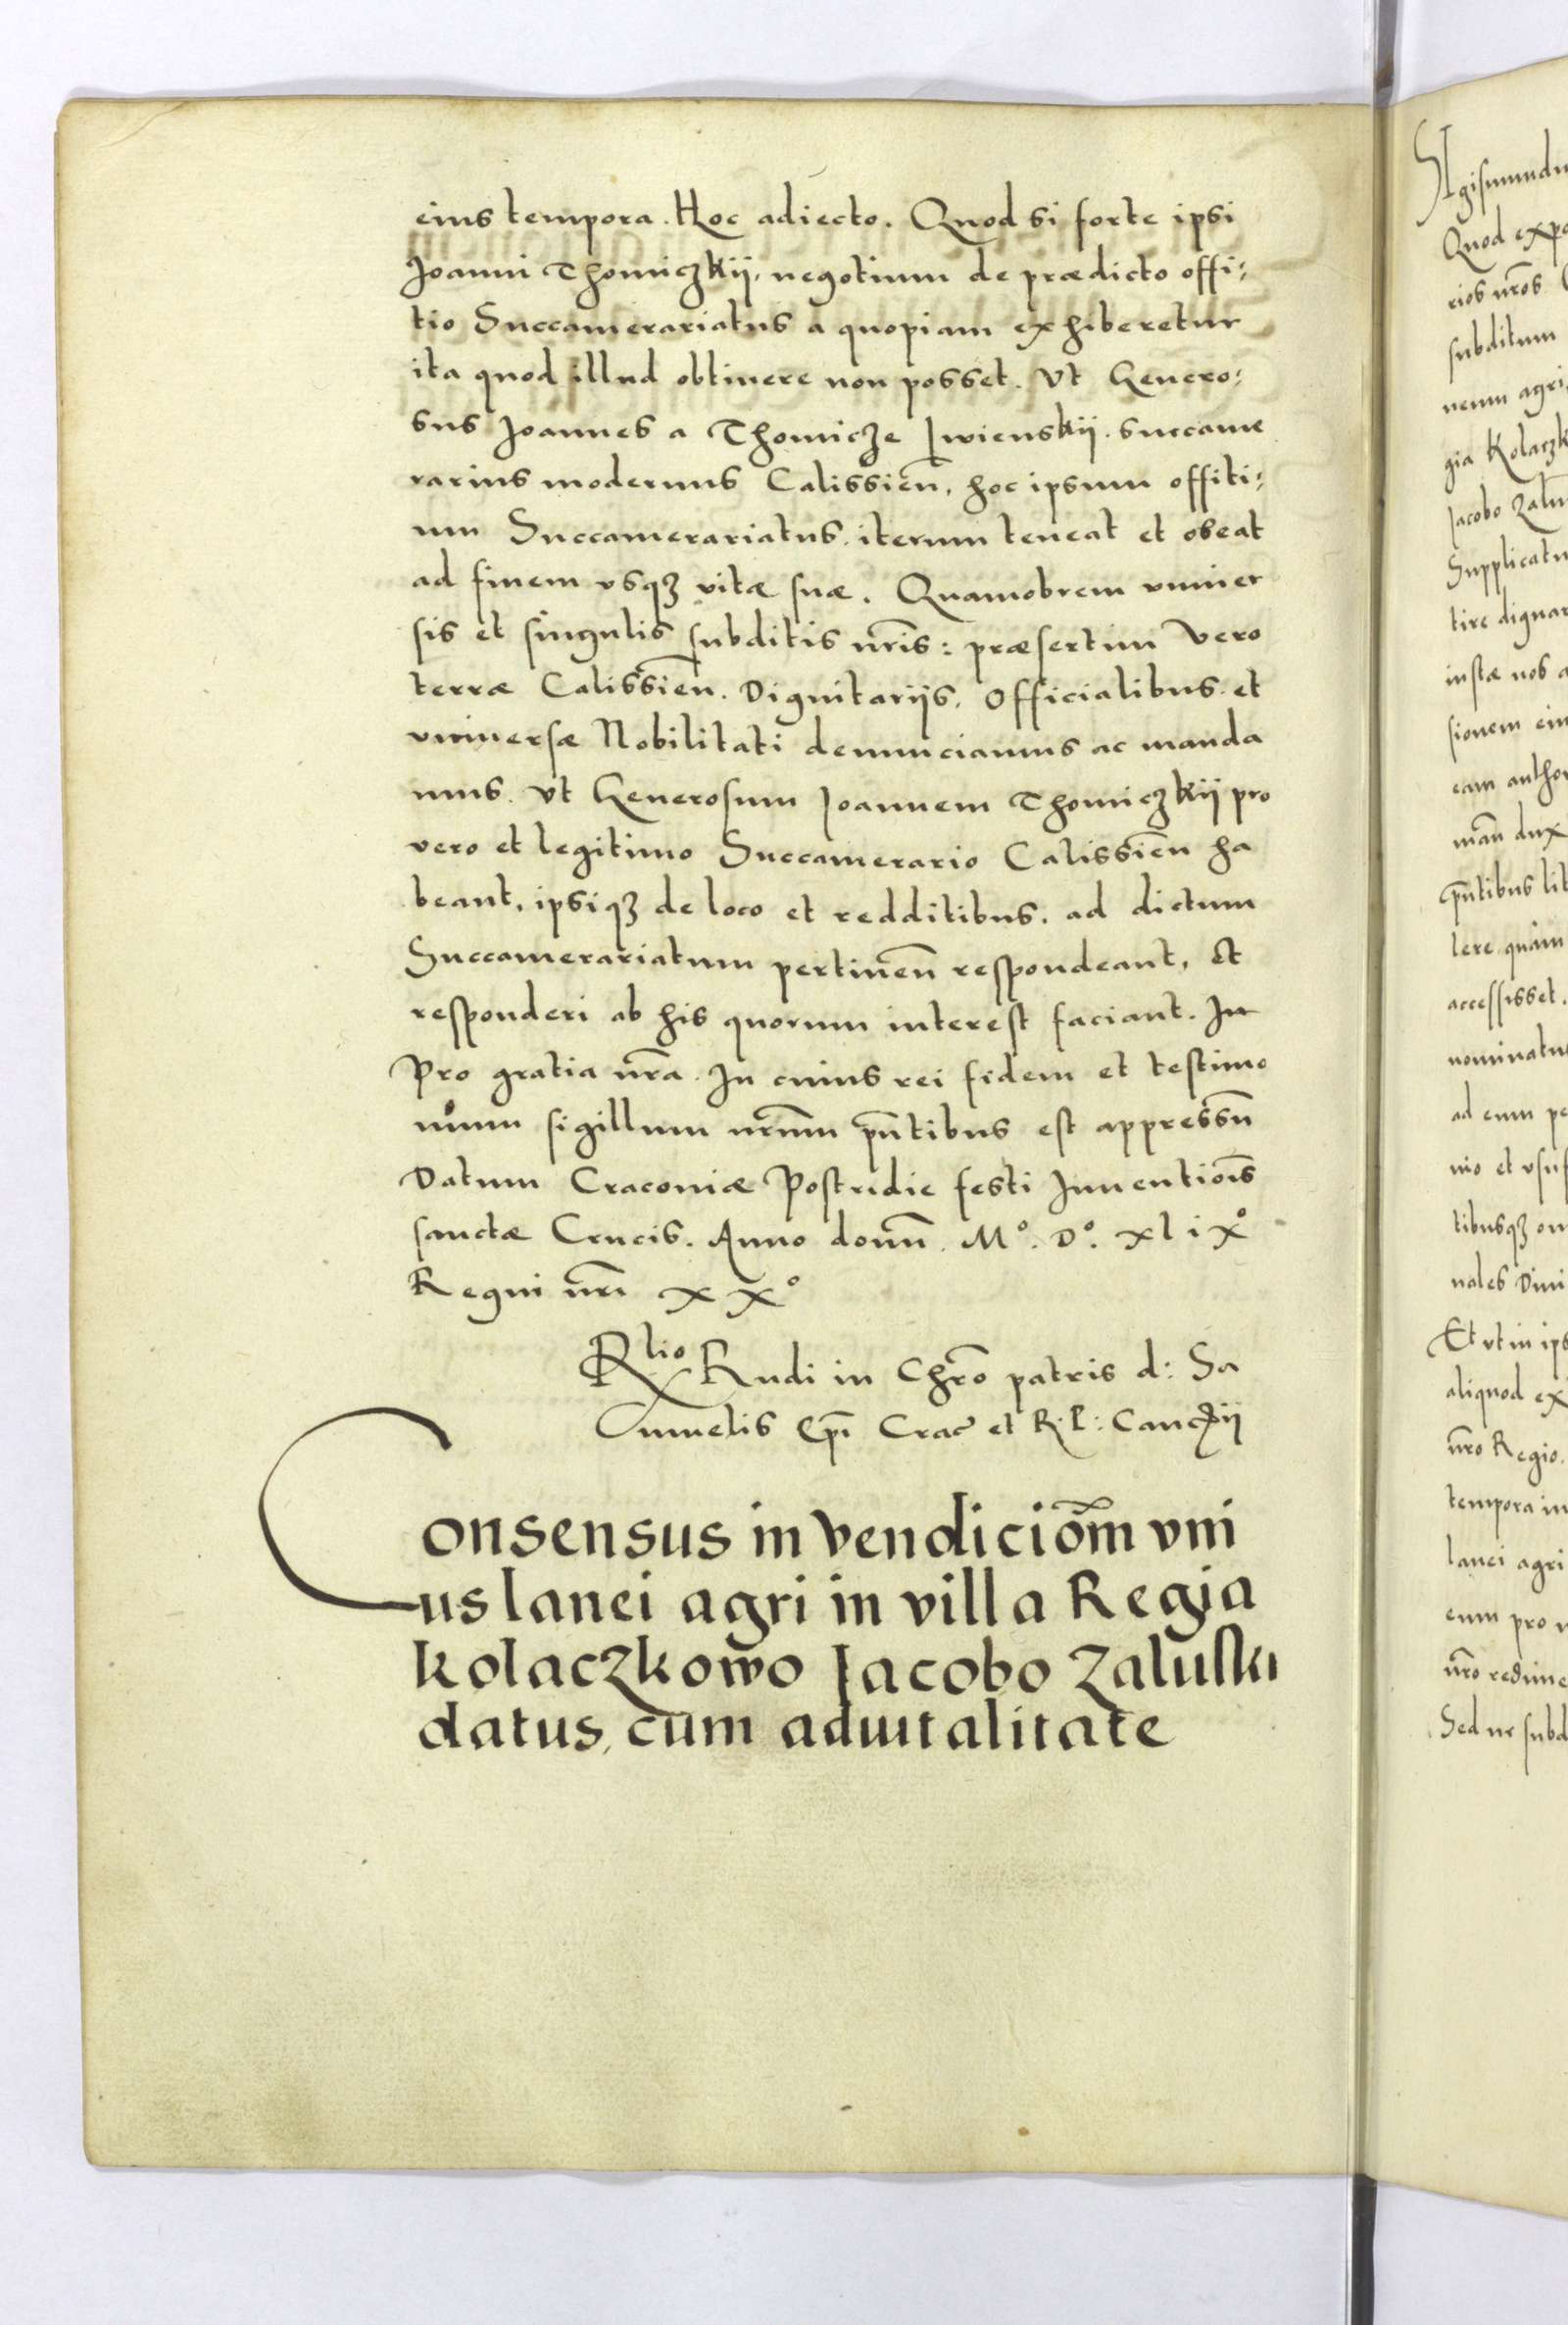 eius tempora. Hoc adiecto. Quod si forte ipsi
Joanni Thomiczkij, negotium de prædicto offi:
tio Succamerariatus a quopiam exhiberetur
ita quod illud obtinere non posset. Vt Genero:
sus Joannes a Thomicze Jwienskij. succame
rarius modernus Calissien̄, hoc ipsum offiti:
um Succamerariatus. iterum teneat et obeat
ad finem vsqꝫ vitæ suæ. Quamobrem vniuer
sis et singulis subditis nr̄is: præsertim Vero
terræ Calissien̄. Dignitarijs, Officialibus. et
vniuersæ Nobilitati denunciamus ac manda
mus. Vt Generosum Joannem Thomiczkij pro
vero et legitimo Succamerario Calissien̄ ha
beant, ipsiqꝫ de loco et redditibus. ad dictum
Succamerariatum pertinen̄ respondeant, Et
responderi ab his quorum interest faciant. In
Pro gratia nr̄a. In cuius rei fidem et testimo
nium sigillum nr̄um pn̄tibus est appressū
Datum Cracoviæ Postridie festi Inuentiōis
sanctæ Crucis. Anno domn̄. Mº. Dº. xlixº
Regni nr̄i xxº
Rlio Rndi in Chr̄o patris d: Sa
muelis Ep̄i Crac̄ et R. P: Cancrij
Consensus in vendiciōm vni
us lanei agri in villa Regia
Kolaczkowo Jacobo Zaluski
datus, cum aduitalitate
SIgismundu
Quod expo
rios nr̄os
subditum
neum agri
gia Kolaczk
Jacobo Zalu
Supplicatu
tire dignar
iustæ nos a
sionem eiu
eam autho
man̄ dux
pn̄tibus lit
lere quam
accessisset.
nominatu
ad eum pe
nio et vsuf
tibusqꝫ om
nales Diui
Et vt in ips
aliquod ex
nr̄o Regio.
tempora in
lanei agri
eum pro v
nr̄o redime
Sed ne subd